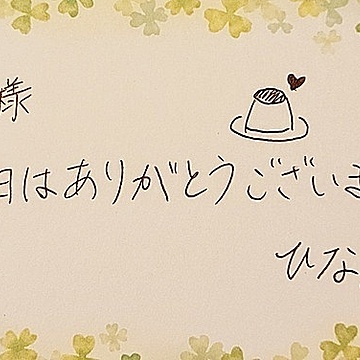 様
日はありがとうございま
ひな